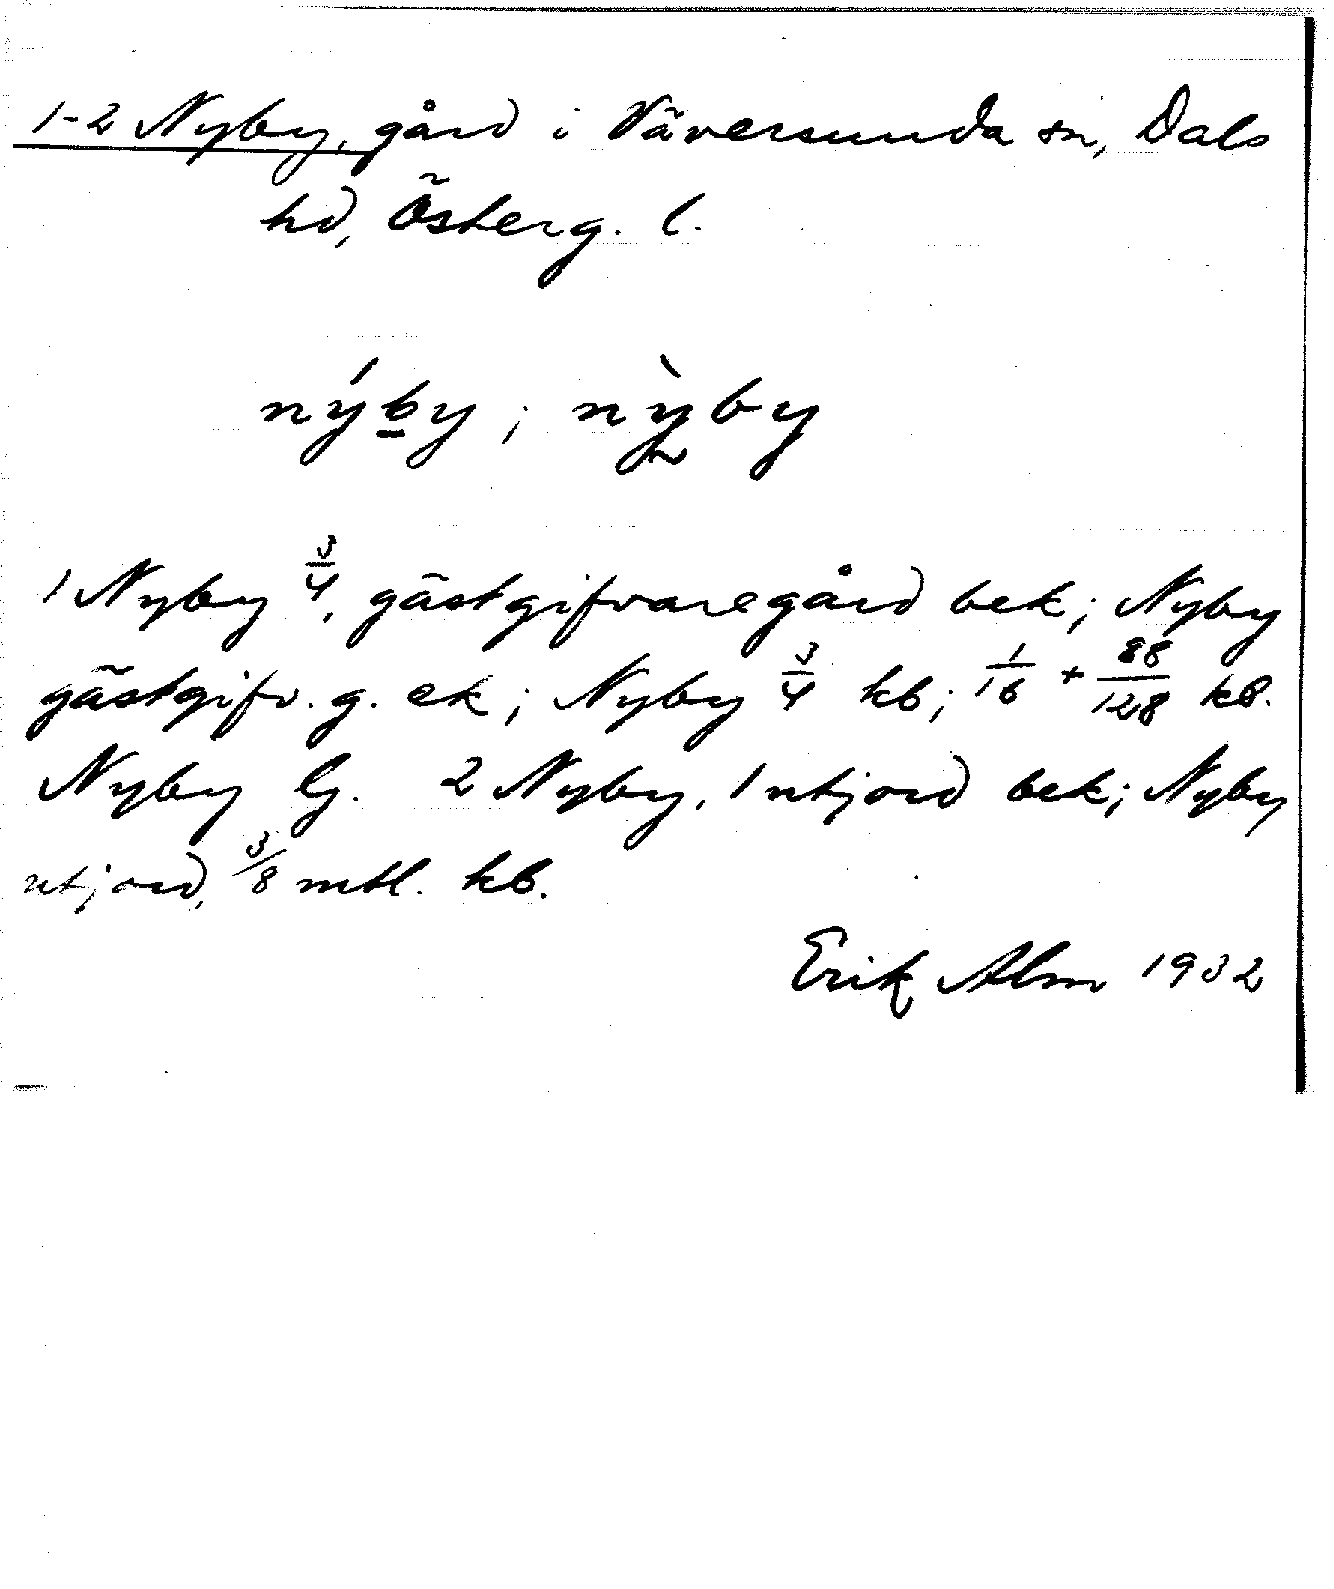 1-2 Nyby, gård i Väversunda sn, Dals
hd, Österg. l.
nýby; nỳby
1 Nyby 3/4, gästgifvaregård bek; Nyby
gästgifv. g. ek; Nyby 3/4 kb; 1/16 + 88/128 kb.
Nyby lj. 2 Nyby, 1 utjord bek; Nyby
utjord, 3/8 mtl. kb.
Erik Alm 1932